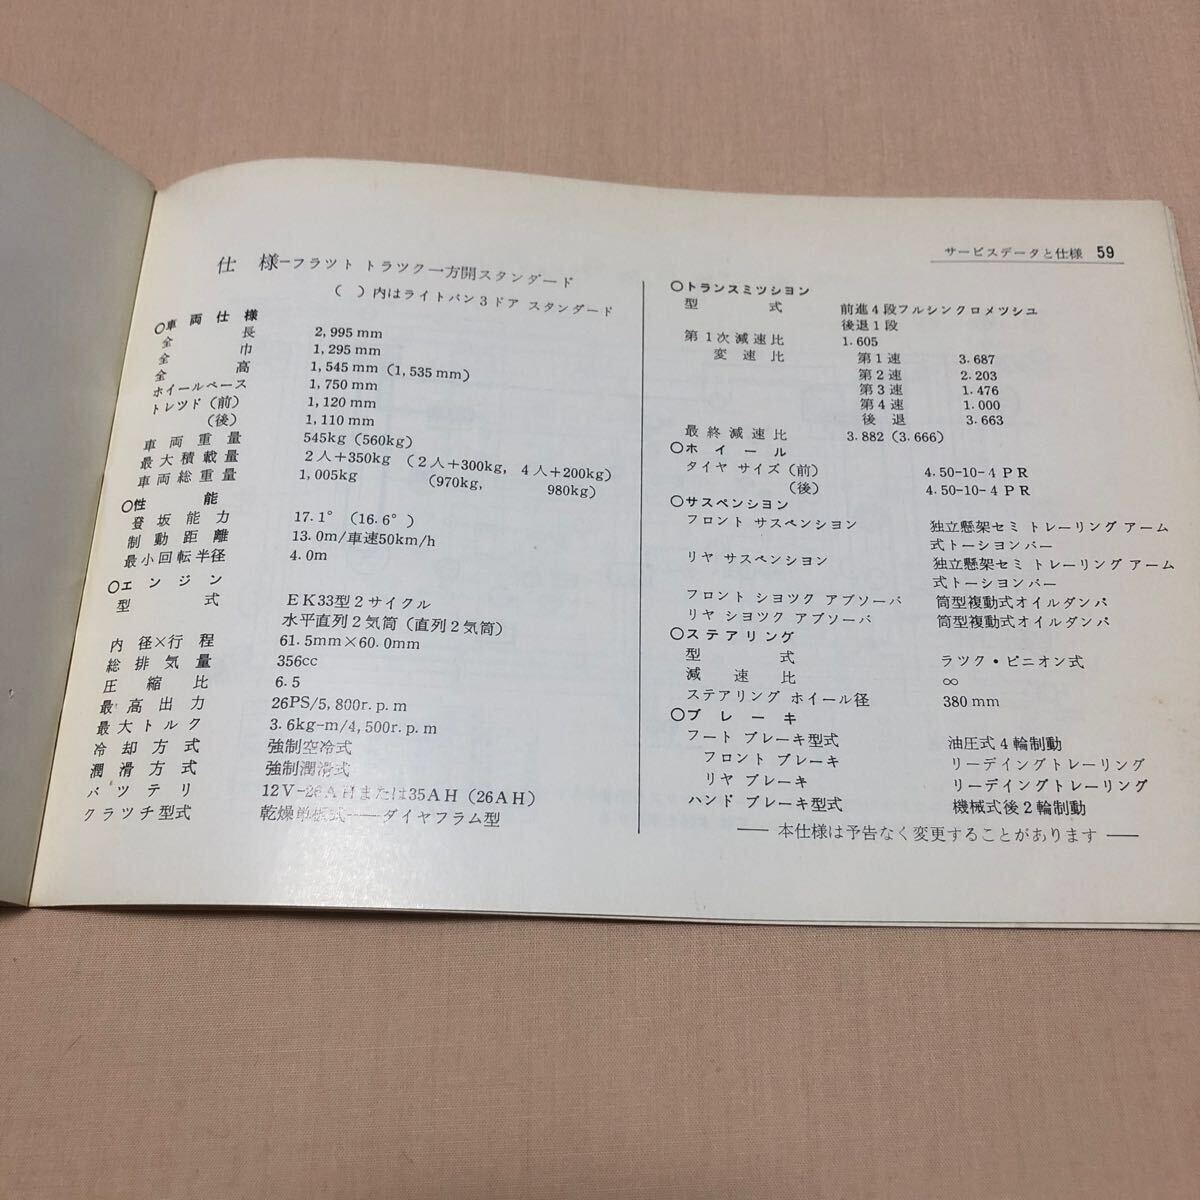 サービスデータと仕様 59
仕 様-フラツト トラツク一方開スタンダード
( )内はライトバン3ドア スタンダード
○車両仕様
全 長 2,995mm
全 巾 1,295mm
全 高 1,545mm(1,535mm)
ホイールベース 1,750mm
トレツド(前) 1,120mm
(後) 1,110mm
車両重量 545kg(560kg)
最大積載量 2人+350kg (2人+300kg, 4人+200kg)
車両総重量 1,005kg (970kg, 980kg)
○性 能
登坂能力 17.1°(16.6°)
制動距離 13.0m/車速50km/h
最小回転半径 4.0m
○エンジン
型 式 EK33型2サイクル
水平直列2気筒(直列2気筒)
内径×行程 61.5mm×60.0mm
総排気量 356cc
圧縮比 6.5
最高出力 26PS/5,800r.p.m
最大トルク 3.6kg-m/4,500r.p.m
冷却方式 強制空冷式
潤滑方式 強制潤滑式
バツテリ 12V-26AHまたは35AH(26AH)
クラツチ型式 乾燥単板式——ダイヤフラム型
○トランスミツシヨン
型 式 前進4段フルシンクロメツシユ
後退1段
第1次減速比 1.605
変速比 第1速 3.687
第2速 2.203
第3速 1.476
第4速 1.000
後 退 3.663
最終減速比 3.882(3.666)
○ホイール
タイヤ サイズ(前) 4.50-10-4PR
(後) 4.50-10-4PR
○サスペンシヨン
フロント サスペンシヨン 独立懸架セミ トレーリング アーム
式トーシヨンバー
リヤ サスペンシヨン 独立懸架セミ トレーリング アーム
式トーシヨンバー
フロント シヨツク アブソーバ 筒型複動式オイルダンパ
リヤ シヨツク アブソーバ 筒型複動式オイルダンパ
○ステアリング
型 式 ラツク・ピニオン式
減速比 ∞
ステアリング ホイール径 380mm
○ブレーキ
フート ブレーキ型式 油圧式4輪制動
フロント ブレーキ リーデイングトレーリング
リヤ ブレーキ リーデイングトレーリング
ハンド ブレーキ型式 機械式後2輪制動
—— 本仕様は予告なく変更することがあります ——